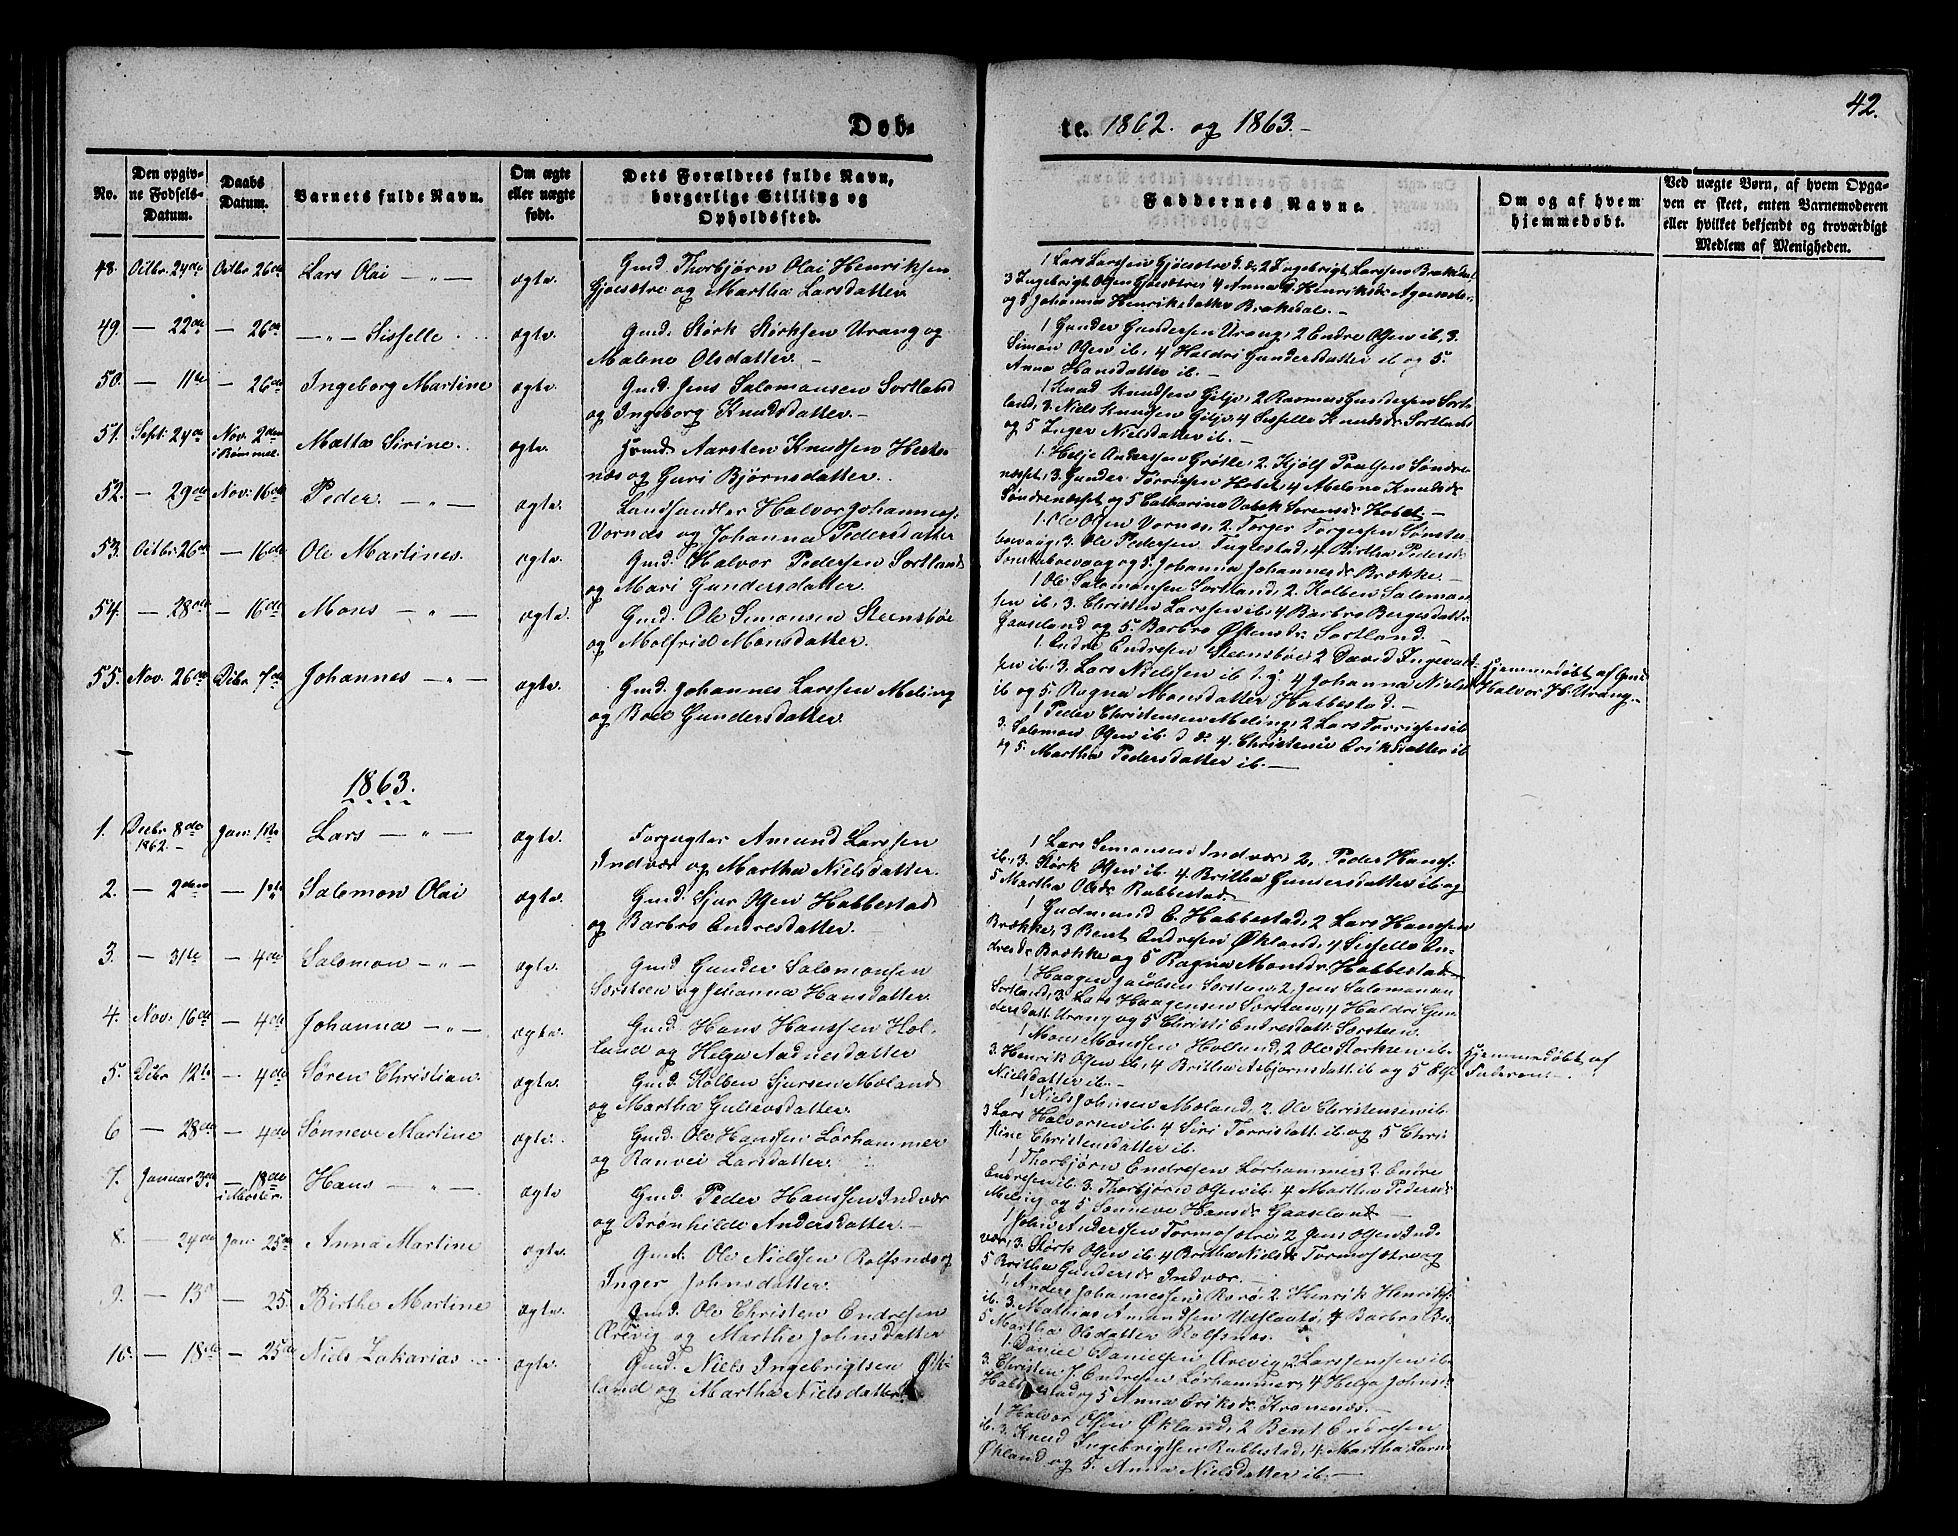 42.
Døb-
te. 1862. og 1863.-
No.
Den opgiv-
ne Fødsels-
Datum.
Daabs
Datum.
Barnets fulde Navn.
Om ægte
eller uægte
født.
Dets Forældres fulde Navn,
borgerlige Stilling og
Opholdssted.
Faddernes Navne.
Om og af hvem
hjemmedøbt.
Ved uægte Børn, af hvem Opga-
ven er skeet, enten Barnemoderen
eller hvilket bekjendt og troværdigt
Medlem af Menigheden.
48. Octbr. 24de Octbr 26de Lars Olai - " - ægte.
Gmd. Thorbjørn Olai Henriksen
Gjøesætre og Martha Larsdatter
1 Lars Larssen Gjøesætre 2 Ingebrigt Larssen Brækdal
3 Ingebrigt Olsen Gjøesætre 4 Anna Henriksdr
og 5 Johanna Henriksdatter Brækdal. -
49. - 22de - 26de - " - Sisselle ægte.
Gmd. Størk Størksen Urang og
Malene Olsdatter. -
1 Gunder Gundersen Urang, 2 Endre Olsen ib, 3.
Simon Olsen ib, 4 Haldri Gundersdatter ib og 5.
Anna Hansdatter ib. -
50. - 11te - 26de Ingeborg Martine ægte.
Gmd. Jens Salomonsen Sortland
og Ingeborg Knudsdatter. -
1 Knud Knudsen Gilje, 2 Rasmus Gundersen Sort-
land, 3. Niels Knudsen Gilje, 4 Sisselle Knudsdr Sortland
og 5 Inger Nielsdatter ib. -
51. Septr. 24de Nov. 2den Matta Sirine. ægte.
i Bømmel.
Gmd Aarsten Knudsen Heste-
næs og Guri Bjørnsdatter.
1. Helje Anderssen Grøtle, 2. Kjølf Poulsen Søndre-
næsset, 3. Gunder Torrissen Hobet, 4 Malena Knudsdr
Søndrenæsset og 5 Catharina Sørensdr Hobet -
52. - 29de Nov. 16de Peder. - " - ægte.
Landhandler Halvor Johanness.
Vornæs og Johanna Pedersdatter
1. Ole Olsen Vornæs, 2. Torger Torgersen Sønste-
bøvaag, 3. Ole Pedersen Tuglestad, 4 Birtha Pedersdr
og 5. Johanna Johannesdr Brække. -
53. Octbr 26de - 16de Ole Martines. ægte.
Gmd. Halvor Pedersen Sortland
og Mari Gundersdatter.
1 Ole Salomonsen Sortland, 2. Kolben Salomon-
sen ib, 3. Christen Larssen ib, 4 Barbro Børgesdatt:
Gaaseland og 5. Barbro Østensdr Sortland. -
54. - 28de - 16de Mons - " - ægte.
Gmd. Ole Simonsen Steensbøe
og Malfrid Monsdatter.
1. Endre Endresen Steensbøe, 2 David Ingevalt-
sen ib, 3. Lars Nielssen ib 4 Johanna Nielsdr
ib og 5. Ragna Monsdatter Habbestad. -
55. Nov. 26de Decbr 7de Johannes - " - ægte.
Gmd. Johannes Larssen Meling
og Boel Gundersdatter.
1 Peder Christensen Meling, 2 Lars Torrissen ib
3. Salomon Olsen ib. 4. Christense Eriksdatter ib
og 5. Martha Pedersdatter ib. -
Hjemmedøbt af Gmd
Halvor H. Urang. -
1863.
1. Decbr 8de Jan. 1ste Lars - " - ægte.
1862. -
Forpagter Amund Larssen
Indvær og Martha Nielsdatter.
1 Lars Simonsen Indvær, 2, Peder Hans:
ib, 3. Størk Olsen ib. 4. Britha Gundersdatter ib og
5 Martha Olsdr Rubbestad. -
2. - 2den - 1ste Salomon Olai ægte.
Gmd. Sjur Olsen Habbestad
og Barbro Endresdatter. -
1 Gudmund E. Habbestad, 2 Lars Hanssen
Brække, 3 Bent Endresen Økland, 4 Sisselle En-
dresdr Brække og 5 Ragna Monsdr. Habbestad -
3. - 31te - 4de Salomon - " - ægte.
Gmd Gunder Salomonsen
Sørsteen og Johanna Hansdatter.
1 Haagen Jacobsen Sørsteen, 2, Jens Salomonsen
Sortland, 3. Lars Haagensen Sørsteen, 4 Haldri Gun-
dersdatt. Urang og 5 Christi Endresdatt. Sørsteen.
4. Nov. 16de - 4de Johanna - " - ægte.
Gmd. Hans Hanssen Hol-
land og Helga Aadnesdatter
1 Mons Monssen Holland, 2 Ole Størksen ib.
3. Henrik Olsen ib, 4 Britha Asbjørnsdatt. ib og 5 Else
Nielsdatter ib. -
Hjemmedøbt af
Faderen. -
5. Decbr 12te - 4de Søren Christian. ægte.
Gmd. Kolben Sjursen Moland
og Martha Gulievsdatter.
1 Niels Johnsen Moland, 2. Ole Christensen ib.
3 Lars Halvorsen ib. 4 Siri Torrisdatt. ib. og 5 Chri-
stine Christensdatter ib.
6 - 28de - 4de Sønneve Martine ægte.
Gmd. Ole Hanssen Lørhammer
og Ranvei Larsdatter.
1 Thorbjørn Endresen Lørhammer, 2. Endre
Endresen ib. 3. Thorbjørn Olsen ib. 4 Martha Pedersdr
Meling og 5 Sønneve Hansdr Gaaseland
7. Januar 3die - 18de Hans - " - ægte
i Moster.
Gmd. Peder Hanssen Indvær
og Brønhilde Andersdatter. -
1 John Anderssen Tormosætre, 2 Jens Olsen Ind-
vær, 3. Størk Olsen ib. 4 Britha Nielsdr Tormosætre og
5 Britha Gundersdr Indvær. -
8. - 24de Jan. 25de Anna Martine ægte.
Gmd. Ole Nielssen Rolfsnæs og
Inger Johnsdatter.
1, Anders Johannessen Rorø, 2. Henrik Henriks:
ib. 3. Mathias Amundsen 4 Barbro
5 Martha Olsdatter Rolfsnæs.
9. - 13de - 25. Birthe Martine ægte.
Gmd. Ole Christen Endresen
Ørevig og Marthe Johnsdatter
1. Daniel Danielsen Ørevig, 2 Lars Jenssen ib.
3. Christen J. Endresen Lørhammer, 4 Helga Johnsdr
Habbestad og 5 Anna Eriksdr. Kranenæs.
10. - 18de - 25de Niels Zakarias ægte.
Gmd. Niels Ingebrigtsen Øk-
land og Martha Nielsdatter
1 Halvor Olsen Økland, 2 Bent Endresen
ib. 3. Knud Ingebrigtsen Rubbestad, 4. Martha Larsdr
Økland og 5. Anna Nielsdatter ib. -